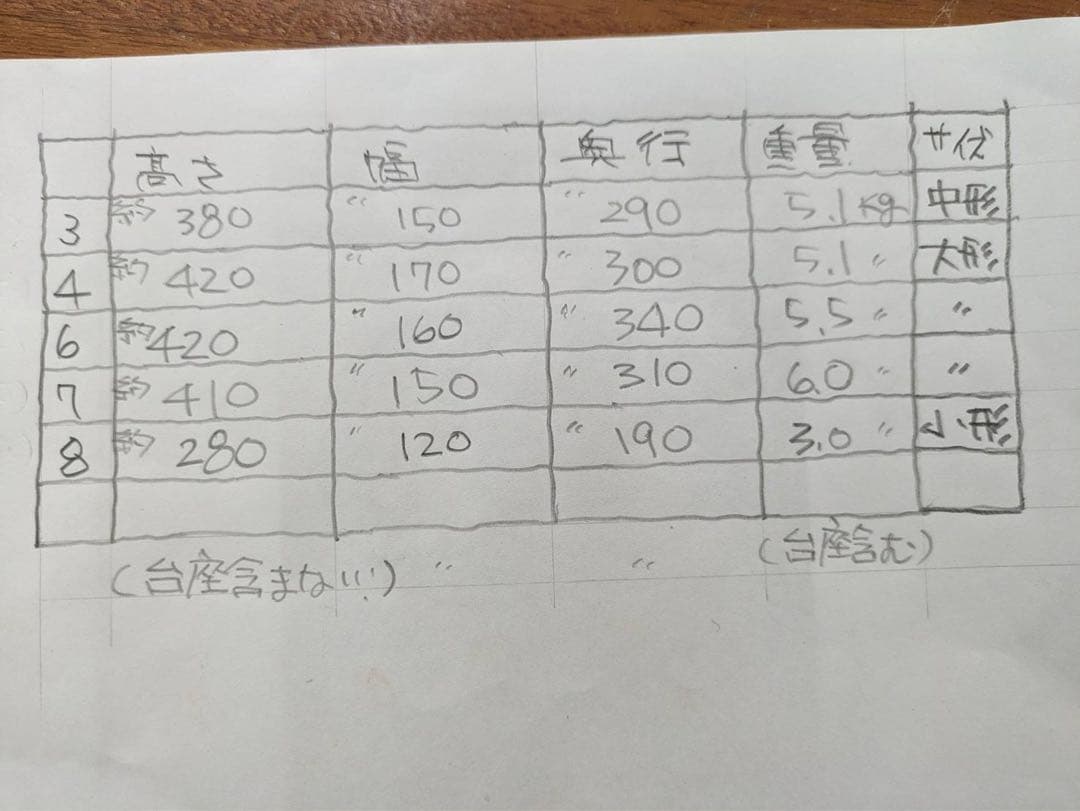 高さ 幅 奥行 重量 サイズ
3 約 380 〃 150 〃 290 5.1kg 中形
4 約 420 〃 170 〃 300 5.1 〃 大形
6 約 420 〃 160 〃 340 5.5 〃 〃
7 約 410 〃 150 〃 310 6.0 〃 〃
8 約 280 〃 120 〃 190 3.0 〃 小形
(台座含まない!) 〃 〃 (台座含む)